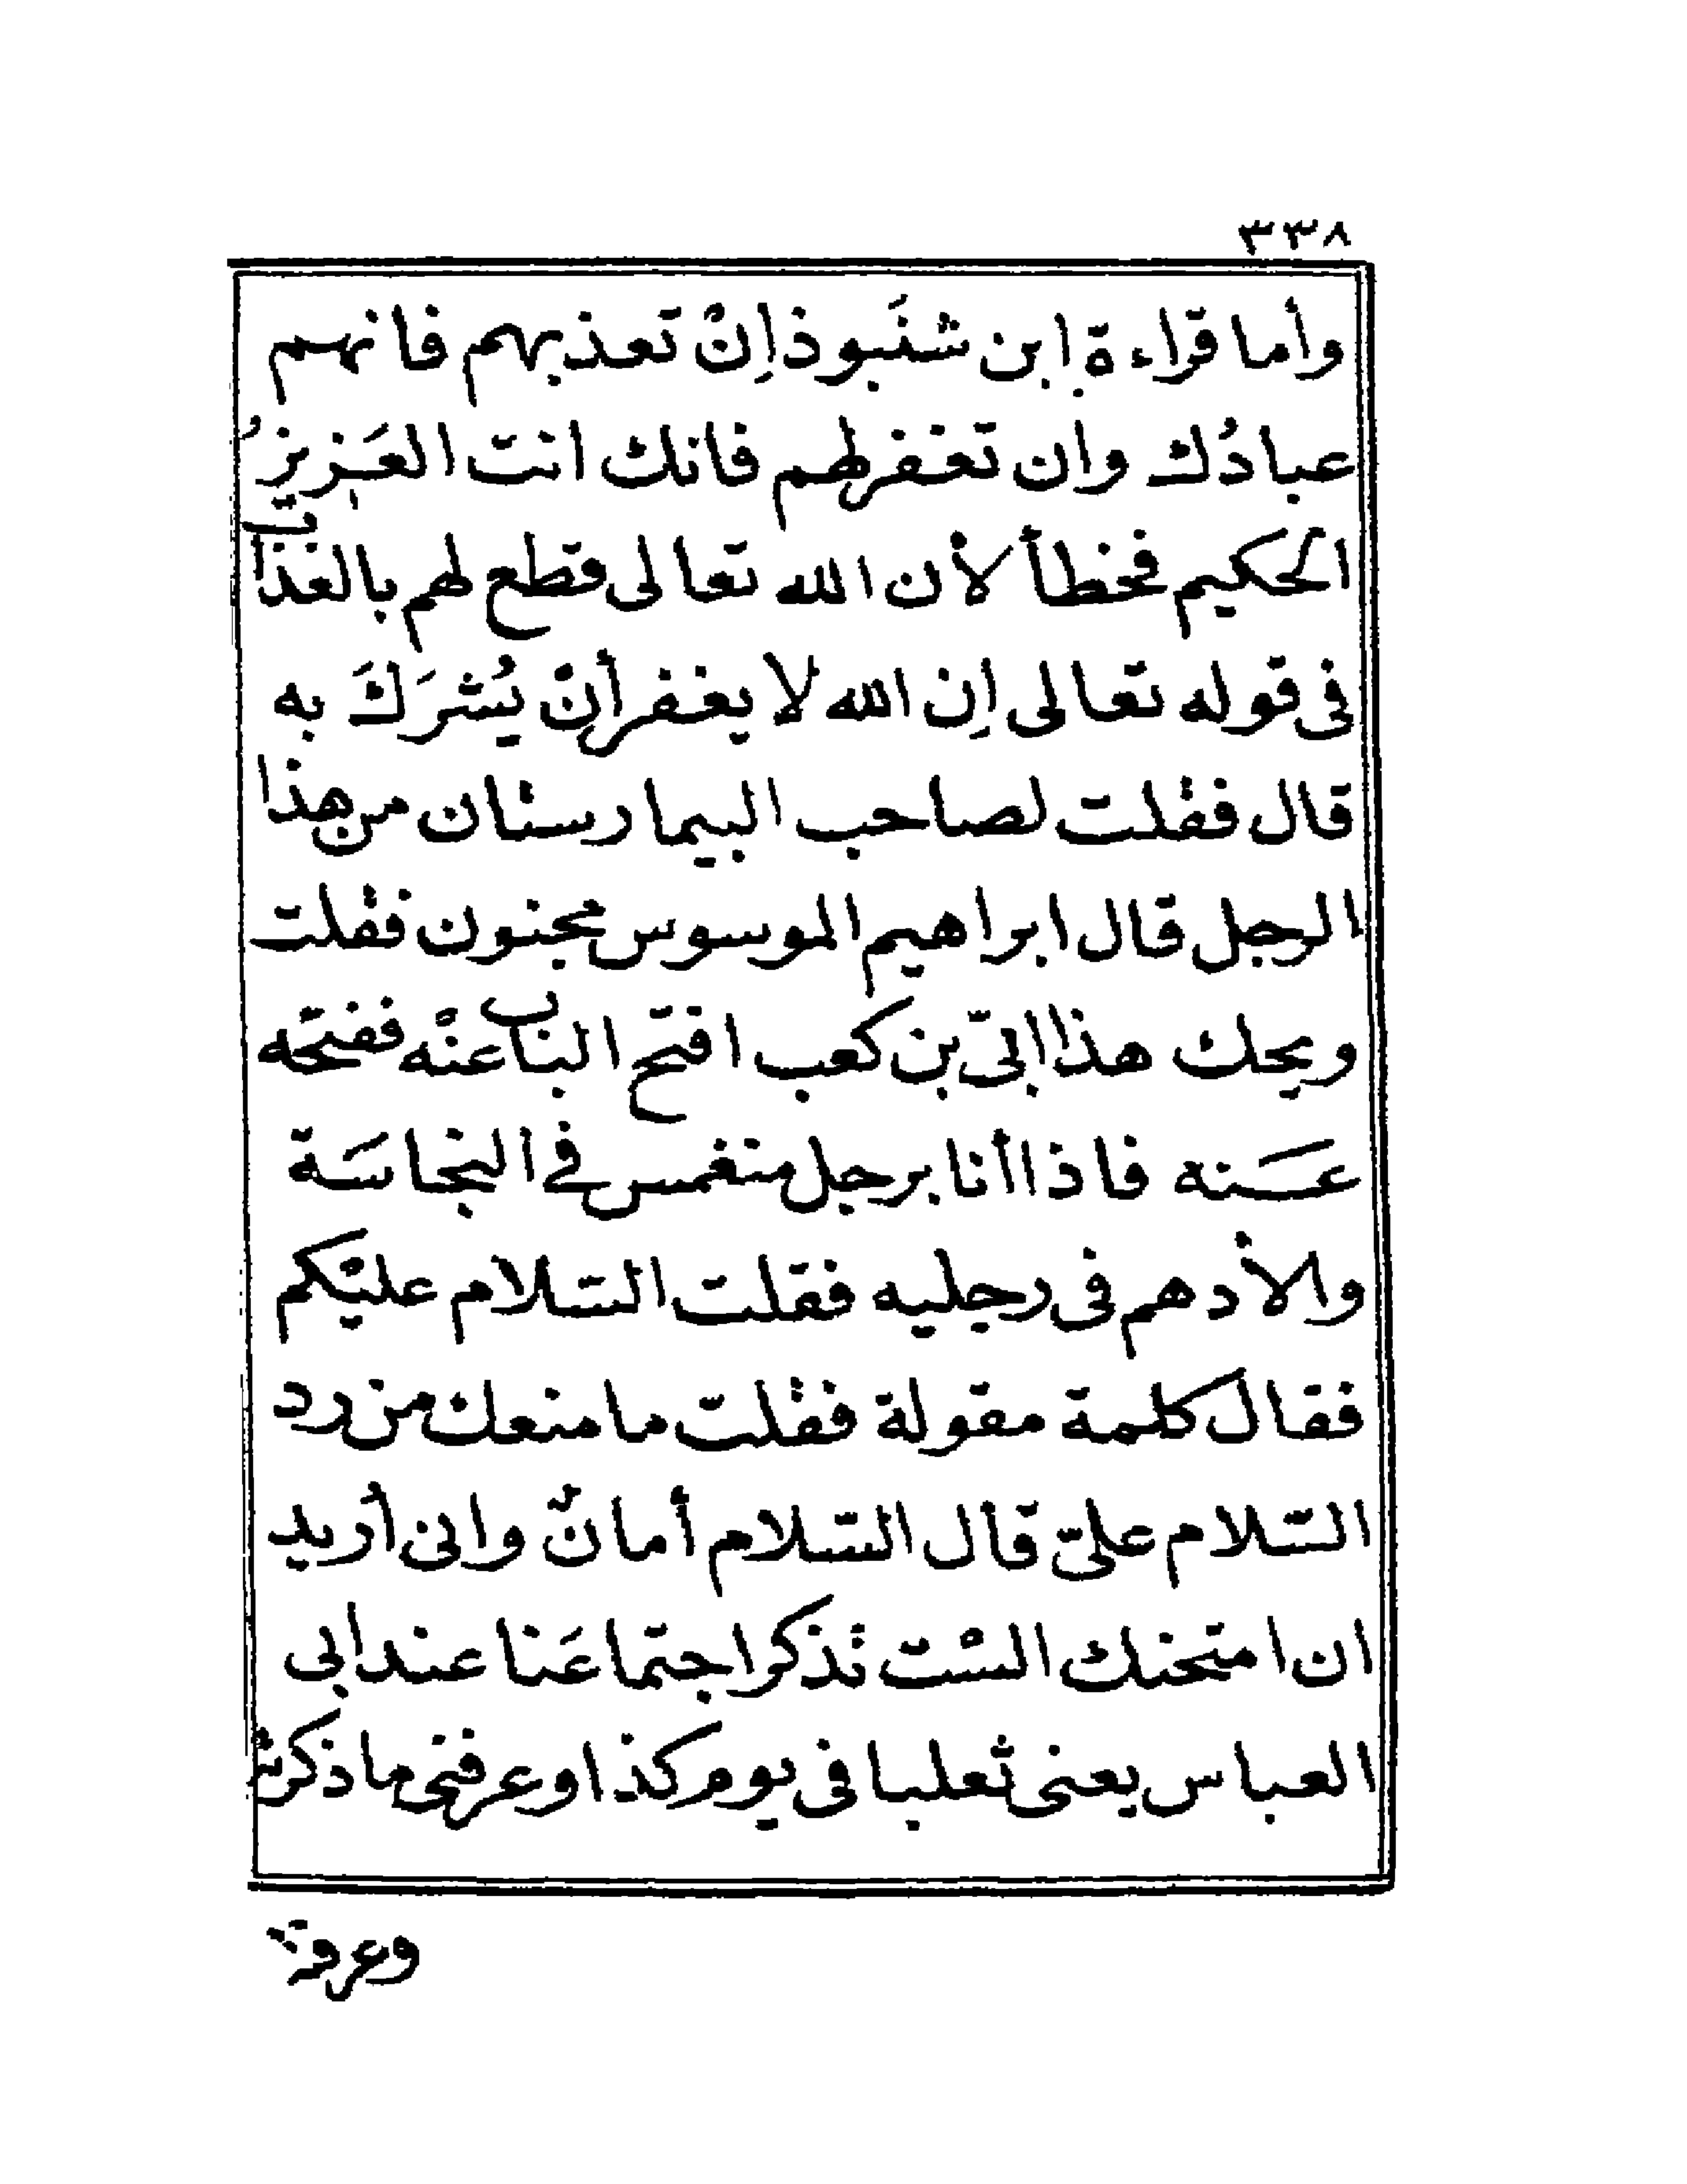 ٣٣٨
وأما قراءة ابن شنَبوذ اِنْ تعذبهم فانهم
عبادُك وان تغفر لهم فانك انت العَزيزُ
الحكيم فخطأ لأن الله تعالى قطع لهم بالعذاب
فى قوله تعالى اِن الله لا يغفر أنْ يُشرَكَ به
قال فقلت لصاحب البيمارستان من هذا
الرجل قال ابراهيم الموسوس مجنون فقلت
ويحك هذا ابىّ بن كعب افتح الباب عنْه ففتحه
عَنه فاذا أنا برجل منغمس فى النجاسَة
والأدهم فى رجليه فقلت السّلام عليْكم
فقال كلمة مقولة فقلت ما منعك من رد
السّلام علىّ قال السّلام أمانٌ وانى اُريد
ان امتحنك الست تذكر اجتماعَنا عند ابى
العباس يعنى ثعلبا فى يوم كذا وعرفنى ما ذكرته
وعرفته